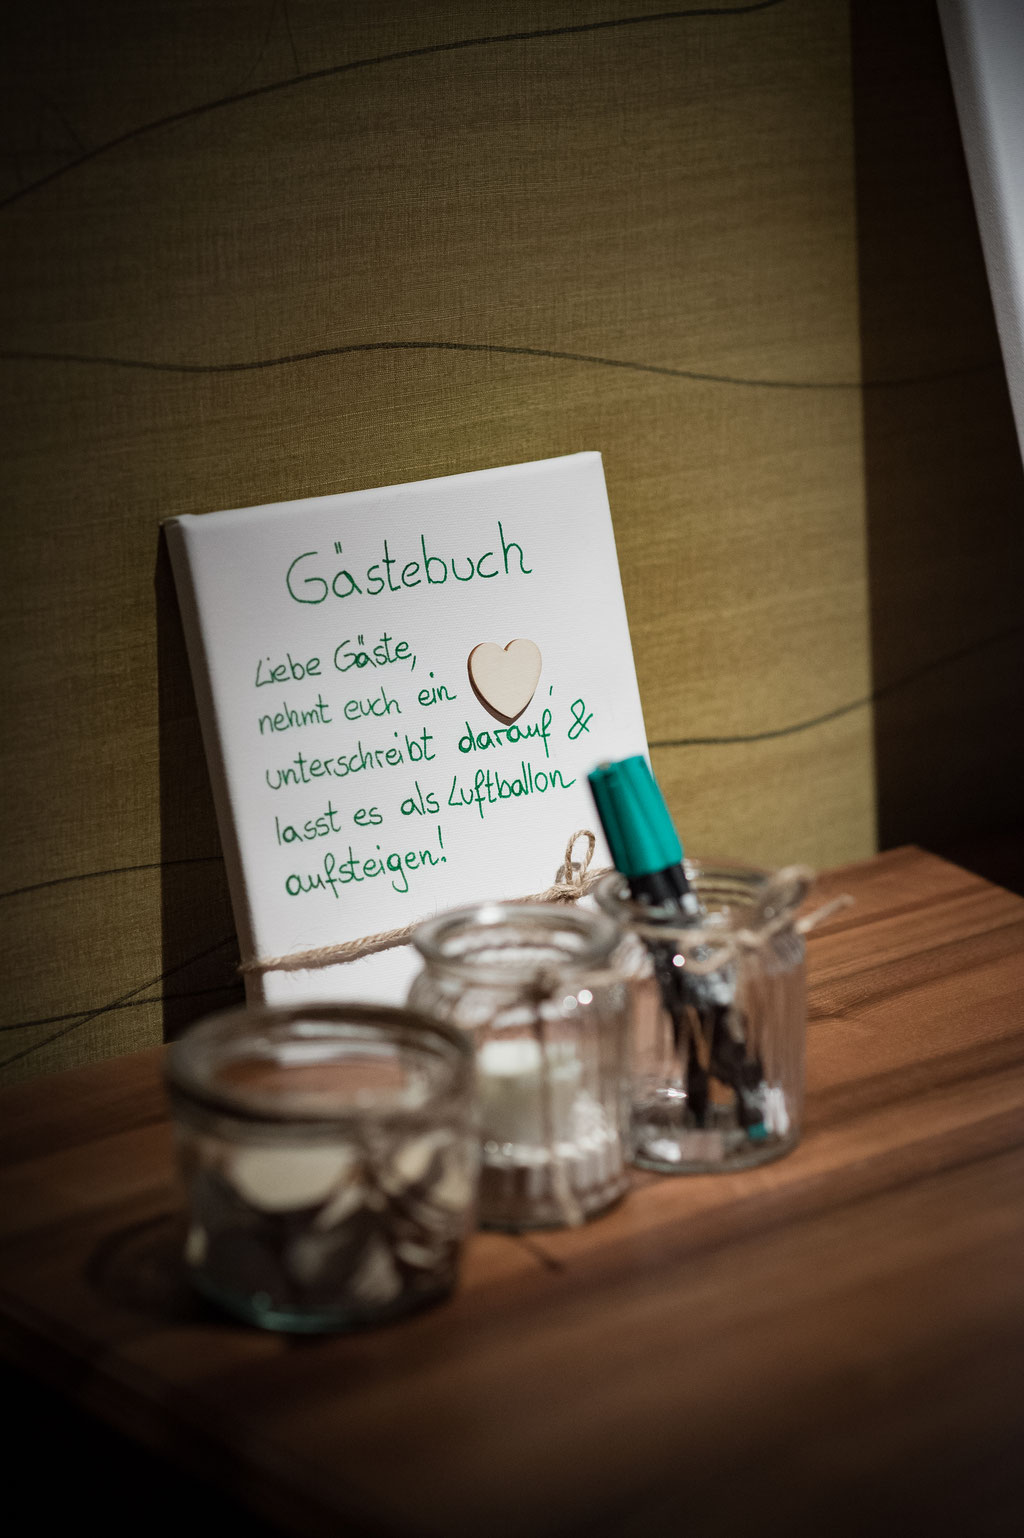 Gästebuch
Liebe Gäste,
nehmt euch ein
unterschreibt darauf, &
lasst es als Luftballon
aufsteigen!